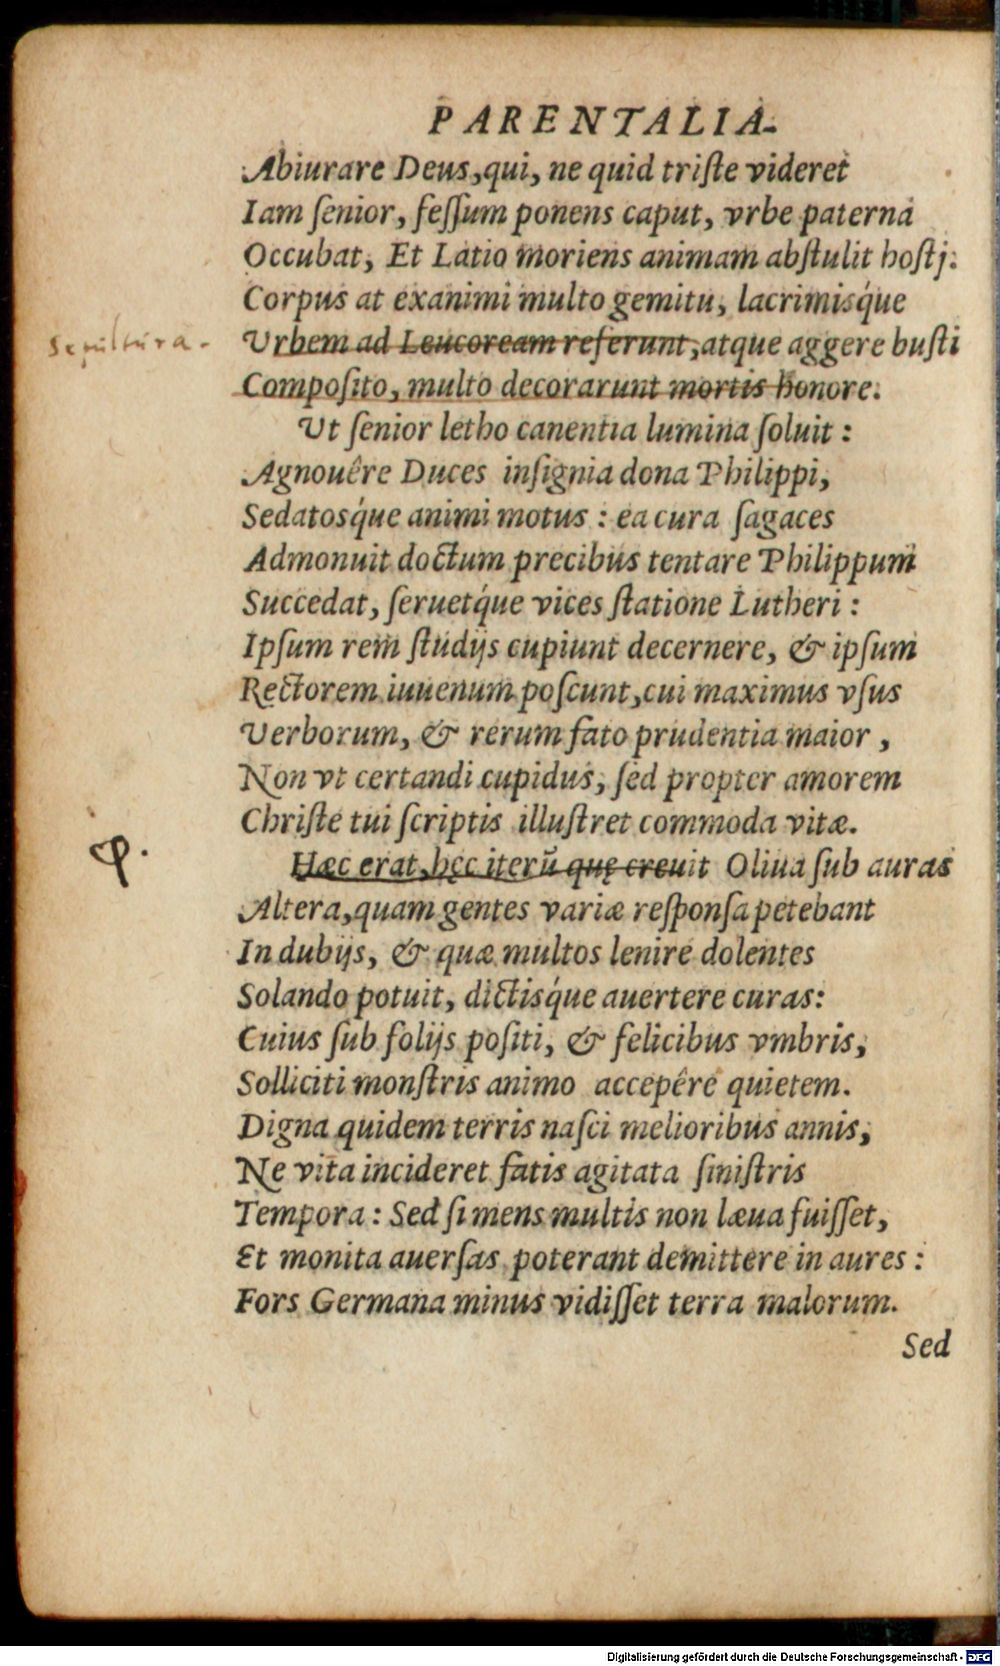 PARENTALIA.
Abiurare Deus, qui, ne quid triſte videret
Iam ſenior, feſſum ponens caput, vrbe paterna
Occubat, Et Latio moriens animam abſtulit hoſtj.
Corpus at exanimi multo gemitu, lacrimisq́ue
Sepultura. Urbem ad Leucoream referunt, atque aggere buſti
Compoſito, multo decorarunt mortis honore.
Ut ſenior letho canentia lumina ſoluit:
Agnouêre Duces inſignia dona Philippi,
Sedatosq́ue animi motus: ea cura ſagaces
Admonuit doctum precibus tentare Philippum
Succedat, ſeruetq́ue vices ſtatione Lutheri:
Ipſum rem ſtudijs cupiunt decernere, & ipſum
Rectorem iuuenum poſcunt, cui maximus vſus
Verborum, & rerum fato prudentia maior,
Non vt certandi cupidus, ſed propter amorem
Chriſte tui ſcriptis illuſtret commoda vitæ.
Hæc erat, hęc iterũ quę creuit Oliua ſub auras
Altera, quam gentes variæ reſponſa petebant
In dubijs, & quæ multos lenire dolentes
Solando potuit, dictisq́ue auertere curas:
Cuius ſub folijs poſiti, & felicibus vmbris,
Solliciti monſtris animo accepêre quietem.
Digna quidem terris naſci melioribus annis,
Ne vita incideret fatis agitata ſiniſtris
Tempora: Sed ſi mens multis non læua fuiſſet,
Et monita auerſas poterant demittere in aures:
Fors Germana minus vidiſſet terra malorum.
Sed
Digitalisierung gefördert durch die Deutsche Forschungsgemeinschaft - DFG